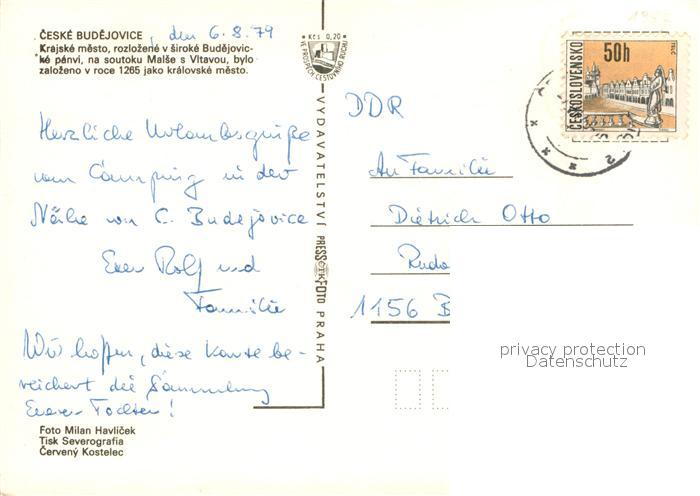 ČESKÉ BUDĚJOVICE, den 6.8.79
Krajské město, rozložené v široké Budějovic-
ké pánvi, na soutoku Malše s Vltavou, bylo
založeno v roce 1265 jako královské město.
Herzliche Urlaubsgrüße
vom Camping in der
Nähe von C. Budejovice
Euer Rolf und
Familie
Wir hoffen, diese Karte be-
reichert die Sammlung
Eurer Tochter!
Foto Milan Havlíček
Tisk Severografia
Červený Kostelec
Kčs 0,20
VE PROSPĚCH CESTOVNÍHO RUCHU
VYDAVATELSTVÍ PRESSFOTO PRAHA
ČESKOSLOVENSKO
50h
TELČ
DDR
An Familie
Dietrich Otto
Rudo
1156 B
privacy protection
Datenschutz